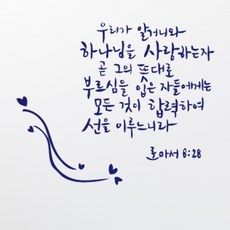 우리가 알거니와
하나님을 사랑하는자
곧 그의 뜻대로
부르심을 입은 자들에게는
모든 것이 합력하여
선을 이루느니라
로마서 8:28